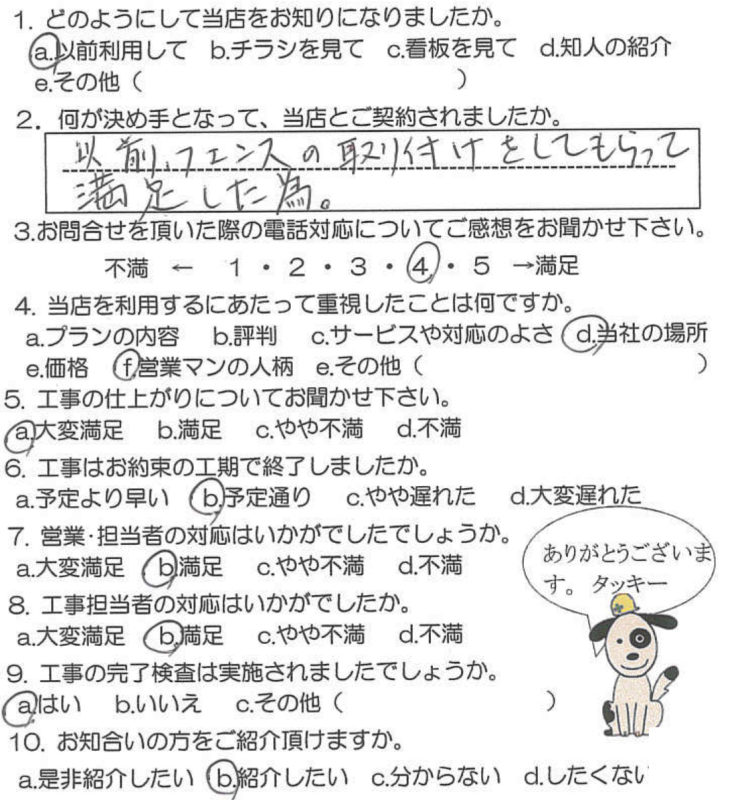 1. どのようにして当店をお知りになりましたか。
a.以前利用して b.チラシを見て c.看板を見て d.知人の紹介
e.その他（ ）
2. 何が決め手となって、当店とご契約されましたか。
以前、フェンスの取り付けをしてもらって
満足した為。
3.お問合せを頂いた際の電話対応についてご感想をお聞かせ下さい。
不満 ← 1・2・3・4・5 →満足
4. 当店を利用するにあたって重視したことは何ですか。
a.プランの内容 b.評判 c.サービスや対応のよさ d.当社の場所
e.価格 f.営業マンの人柄 e.その他（ ）
5. 工事の仕上がりについてお聞かせ下さい。
a.大変満足 b.満足 c.やや不満 d.不満
6. 工事はお約束の工期で終了しましたか。
a.予定より早い b.予定通り c.やや遅れた d.大変遅れた
7. 営業・担当者の対応はいかがでしたでしょうか。
a.大変満足 b.満足 c.やや不満 d.不満
ありがとうございま
す。 タッキー
8. 工事担当者の対応はいかがでしたか。
a.大変満足 b.満足 c.やや不満 d.不満
9. 工事の完了検査は実施されましたでしょうか。
a.はい b.いいえ c.その他（ ）
10. お知合いの方をご紹介頂けますか。
a.是非紹介したい b.紹介したい c.分からない d.したくない